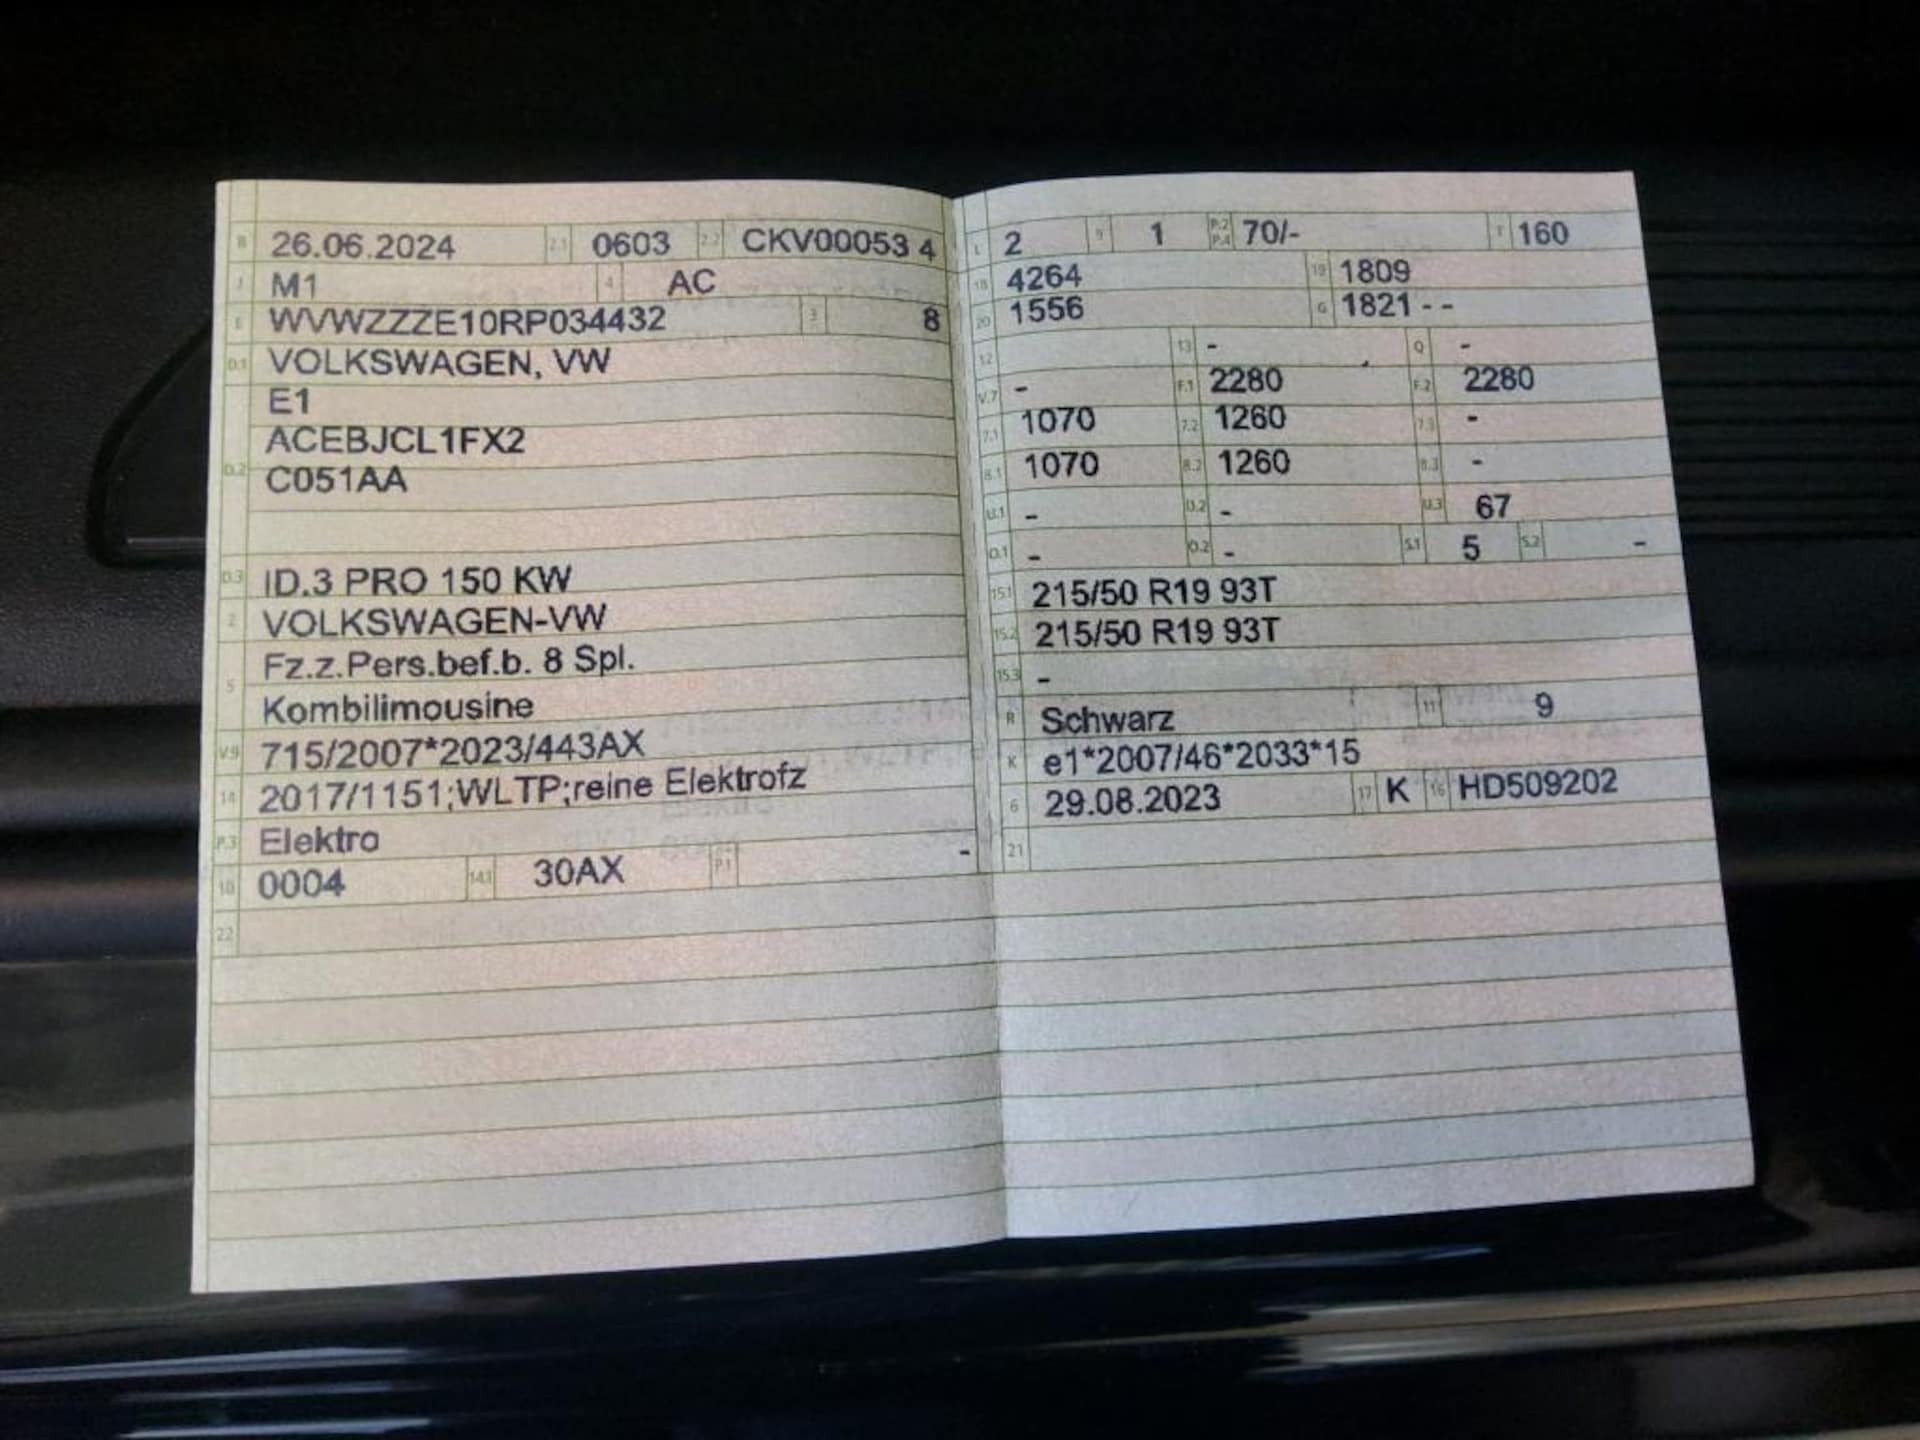 B 26.06.2024 2.1 0603 2.2 CKV00053 4
J M1 4 AC
E WVWZZZE10RP034432 3 8
D.1 VOLKSWAGEN, VW
E1
ACEBJCL1FX2
D.2 C051AA
D.3 ID.3 PRO 150 KW
2 VOLKSWAGEN-VW
5 Fz.z.Pers.bef.b. 8 Spl.
Kombilimousine
V.9 715/2007*2023/443AX
14 2017/1151;WLTP;reine Elektrofz
P.3 Elektro
10 0004 14.1 30AX P.1 -
22
L 2 9 1 P.2 P.4 70/- T 160
18 4264 19 1809
20 1556 G 1821 - -
12 13 - Q -
V.7 - F.1 2280 F.2 2280
7.1 1070 7.2 1260 7.3 -
8.1 1070 8.2 1260 8.3 -
U.1 - U.2 - U.3 67
O.1 - O.2 - S.1 5 S.2 -
15.1 215/50 R19 93T
15.2 215/50 R19 93T
15.3 -
R Schwarz 11 9
K e1*2007/46*2033*15
6 29.08.2023 17 K 16 HD509202
21